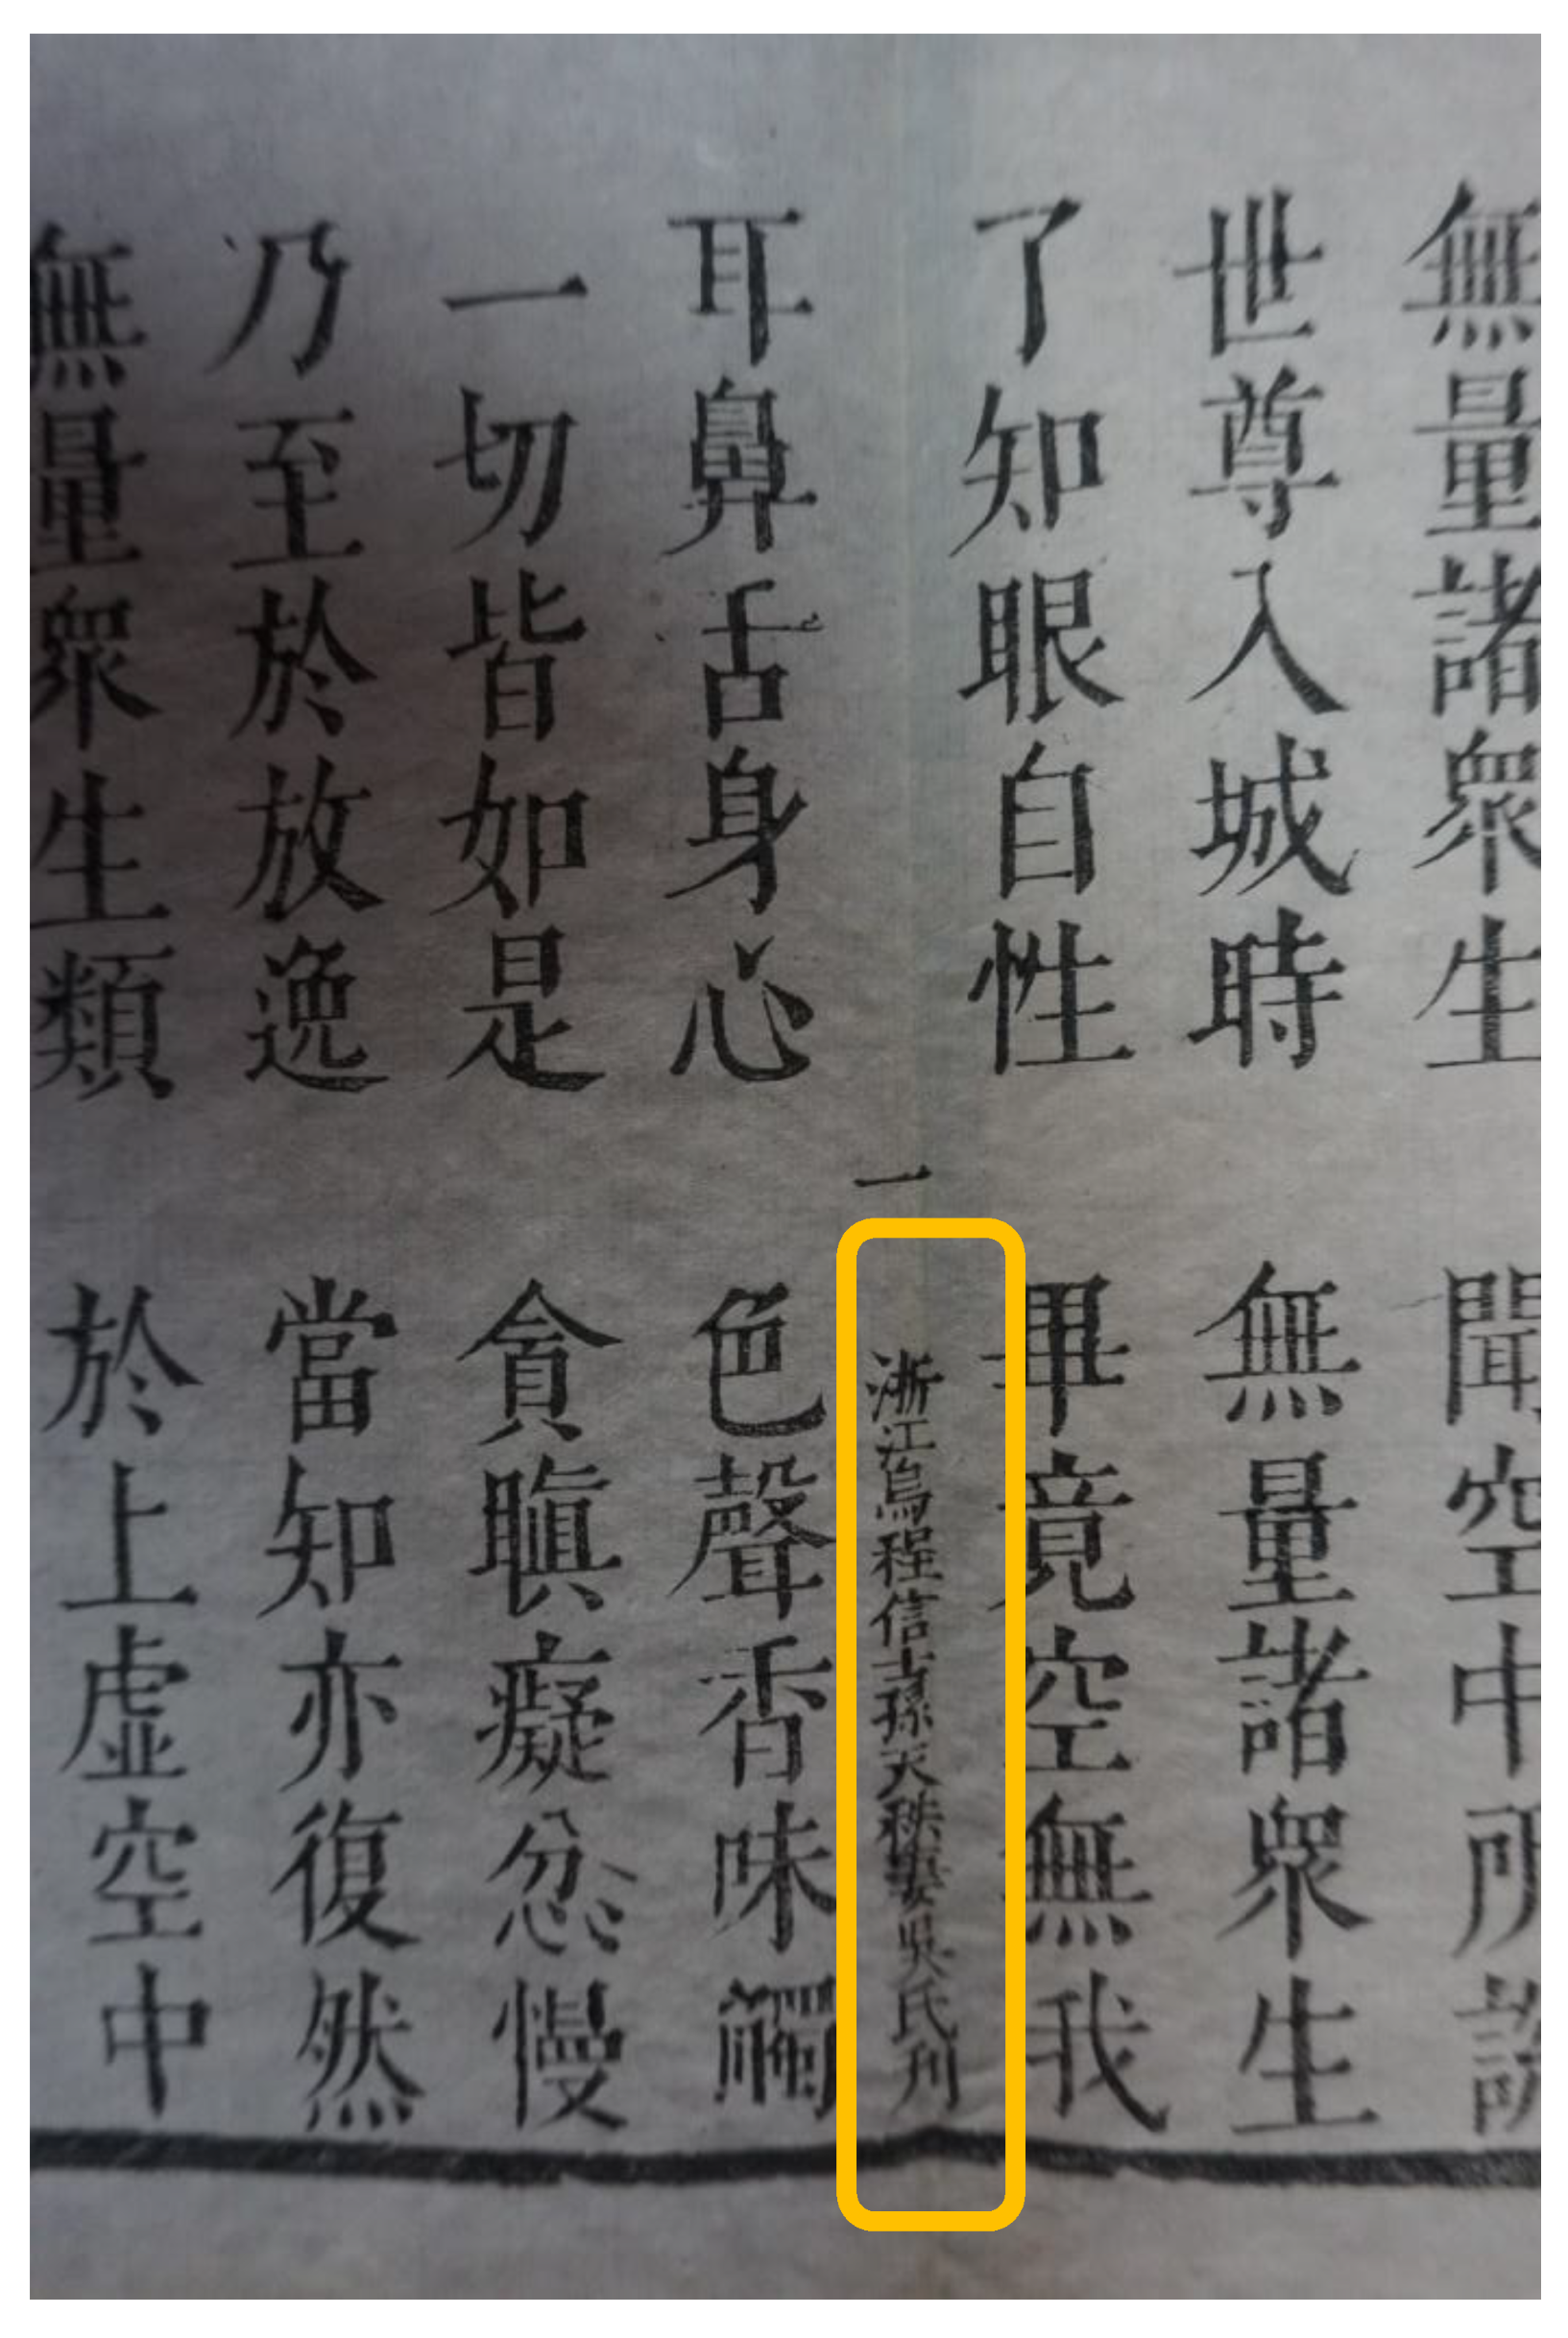 無量諸眾生 聞空中所說
世尊入城時 無量諸眾生
了知眼自性 畢竟空無我
一 浙江烏程信士孫天秩妻吳氏刊
耳鼻舌身心 色聲香味觸
一切皆如是 貪瞋癡忿慢
乃至於放逸 當知亦復然
無量眾生類 於上虛空中